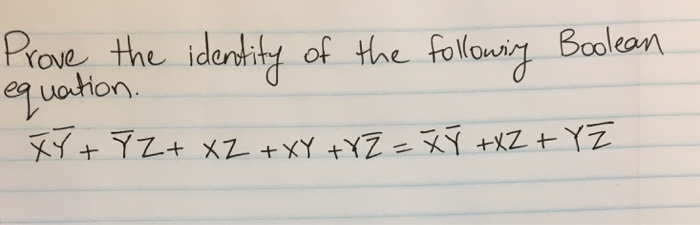 Prove the identity of the following Boolean
equation.
X̅Y̅ + Y̅Z + XZ + XY + YZ̅ = X̅Y̅ + XZ + YZ̅